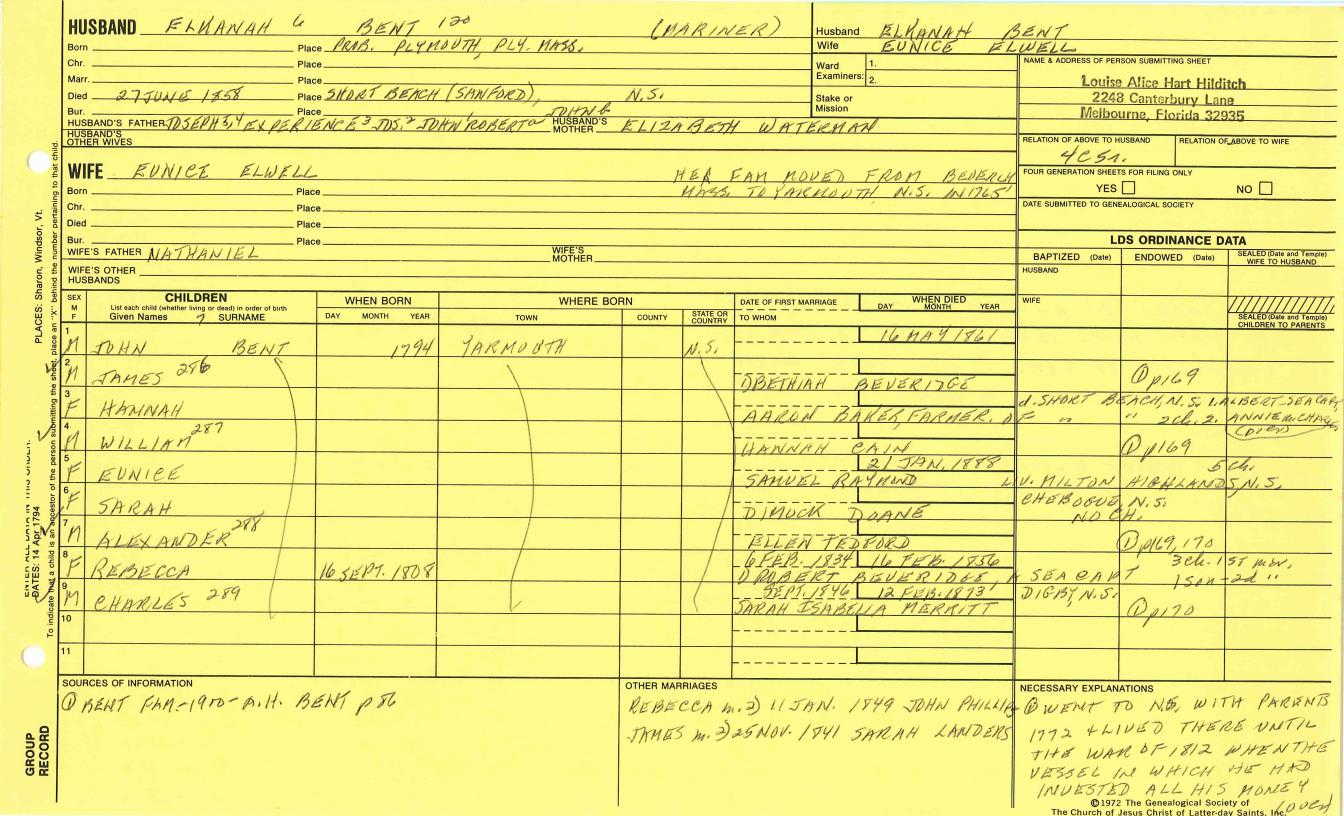 HUSBAND ELKANAH 6 BENT 120 (MARINER)
Born Place PROB. PLYMOUTH, PLY. MASS.
Chr. Place
Marr. Place
Died 27 JUNE 1858 Place SHORT BEACH (SANFORD), N.S.
Bur. Place
HUSBAND'S FATHER JOSEPH 3,4 EXPERIENCE 3 JOS. 2 JOHN ROBERT JOHN
HUSBAND'S MOTHER ELIZABETH WATERMAN
HUSBAND'S OTHER WIVES
Husband ELKANAH BENT
Wife EUNICE ELWELL
Ward Examiners: 1. 2.
Stake or Mission
NAME & ADDRESS OF PERSON SUBMITTING SHEET
Louise Alice Hart Hilditch
2243 Canterbury Lane
Melbourne, Florida 32935
RELATION OF ABOVE TO HUSBAND RELATION OF ABOVE TO WIFE
4C5r.
FOUR GENERATION SHEETS FOR FILING ONLY
YES NO
DATE SUBMITTED TO GENEALOGICAL SOCIETY
WIFE EUNICE ELWELL HER FAM MOVED FROM BEVERLY
MASS. TO YARMOUTH N.S. IN 1765
Born Place
Chr. Place
Died Place
Bur. Place
WIFE'S FATHER NATHANIEL WIFE'S MOTHER
WIFE'S OTHER HUSBANDS
LDS ORDINANCE DATA
BAPTIZED (Date) ENDOWED (Date) SEALED (Date and Temple) WIFE TO HUSBAND
HUSBAND
WIFE
SEALED (Date and Temple) CHILDREN TO PARENTS
SEX M F
CHILDREN
List each child (whether living or dead) in order of birth
Given Names 7 SURNAME
WHEN BORN
DAY MONTH YEAR
WHERE BORN
TOWN COUNTY STATE OR COUNTRY
DATE OF FIRST MARRIAGE
TO WHOM
WHEN DIED
DAY MONTH YEAR
1 M JOHN BENT 1794 YARMOUTH N.S. 16 MAY 1861
2 M JAMES 286 BETHIAH BEVERIDGE ① p169
3 F HANNAH AARON BAKER, FARMER. OF d. SHORT BEACH, N.S. 1. ALBERT-SEA CAPT
" " 2ch. 2. ANNIE m. CHARLES
4 M WILLIAM 287 HANNAH CAIN ① p169
5 F EUNICE 21 JAN. 1888 5 ch.
SAMUEL RAYMOND LIV. MILTON HIGHLANDS, N.S.
6 F SARAH DIMUCK DOANE CHEBOGUE, N.S.
NO CH.
7 M ALEXANDER 288 ELLEN TEDFORD ① p169, 170
8 F REBECCA 16 SEPT. 1808 6 FEB. 1834 16 FEB. 1856 3ch. 1st mar.
ROBERT BEVERIDGE, A SEA CAPT 1 son-2d "
9 M CHARLES 289 SEPT. 1846 12 FEB. 1873 DIGBY, N.S.
SARAH ISABELLA MERRITT ① p170
10
11
SOURCES OF INFORMATION
① BENT FAM.-1900-A.H. BENT p 86
OTHER MARRIAGES
REBECCA m. 2) 11 JAN. 1849 JOHN PHILLIPS
JAMES m. 2) 25 NOV. 1841 SARAH LANDERS
NECESSARY EXPLANATIONS
① WENT TO NS, WITH PARENTS
1772 & LIVED THERE UNTIL
THE WAR OF 1812 WHEN THE
VESSEL IN WHICH HE HAD
INVESTED ALL HIS MONEY
(over)
©1972 The Genealogical Society of
The Church of Jesus Christ of Latter-day Saints, Inc.
GROUP RECORD
ENTER ALL DATA IN THIS ORDER:
DATES: 14 Apr 1794
PLACES: Sharon, Windsor, Vt.
To indicate that a child is an ancestor of the person submitting the sheet, place an "X" behind the number pertaining to that child.